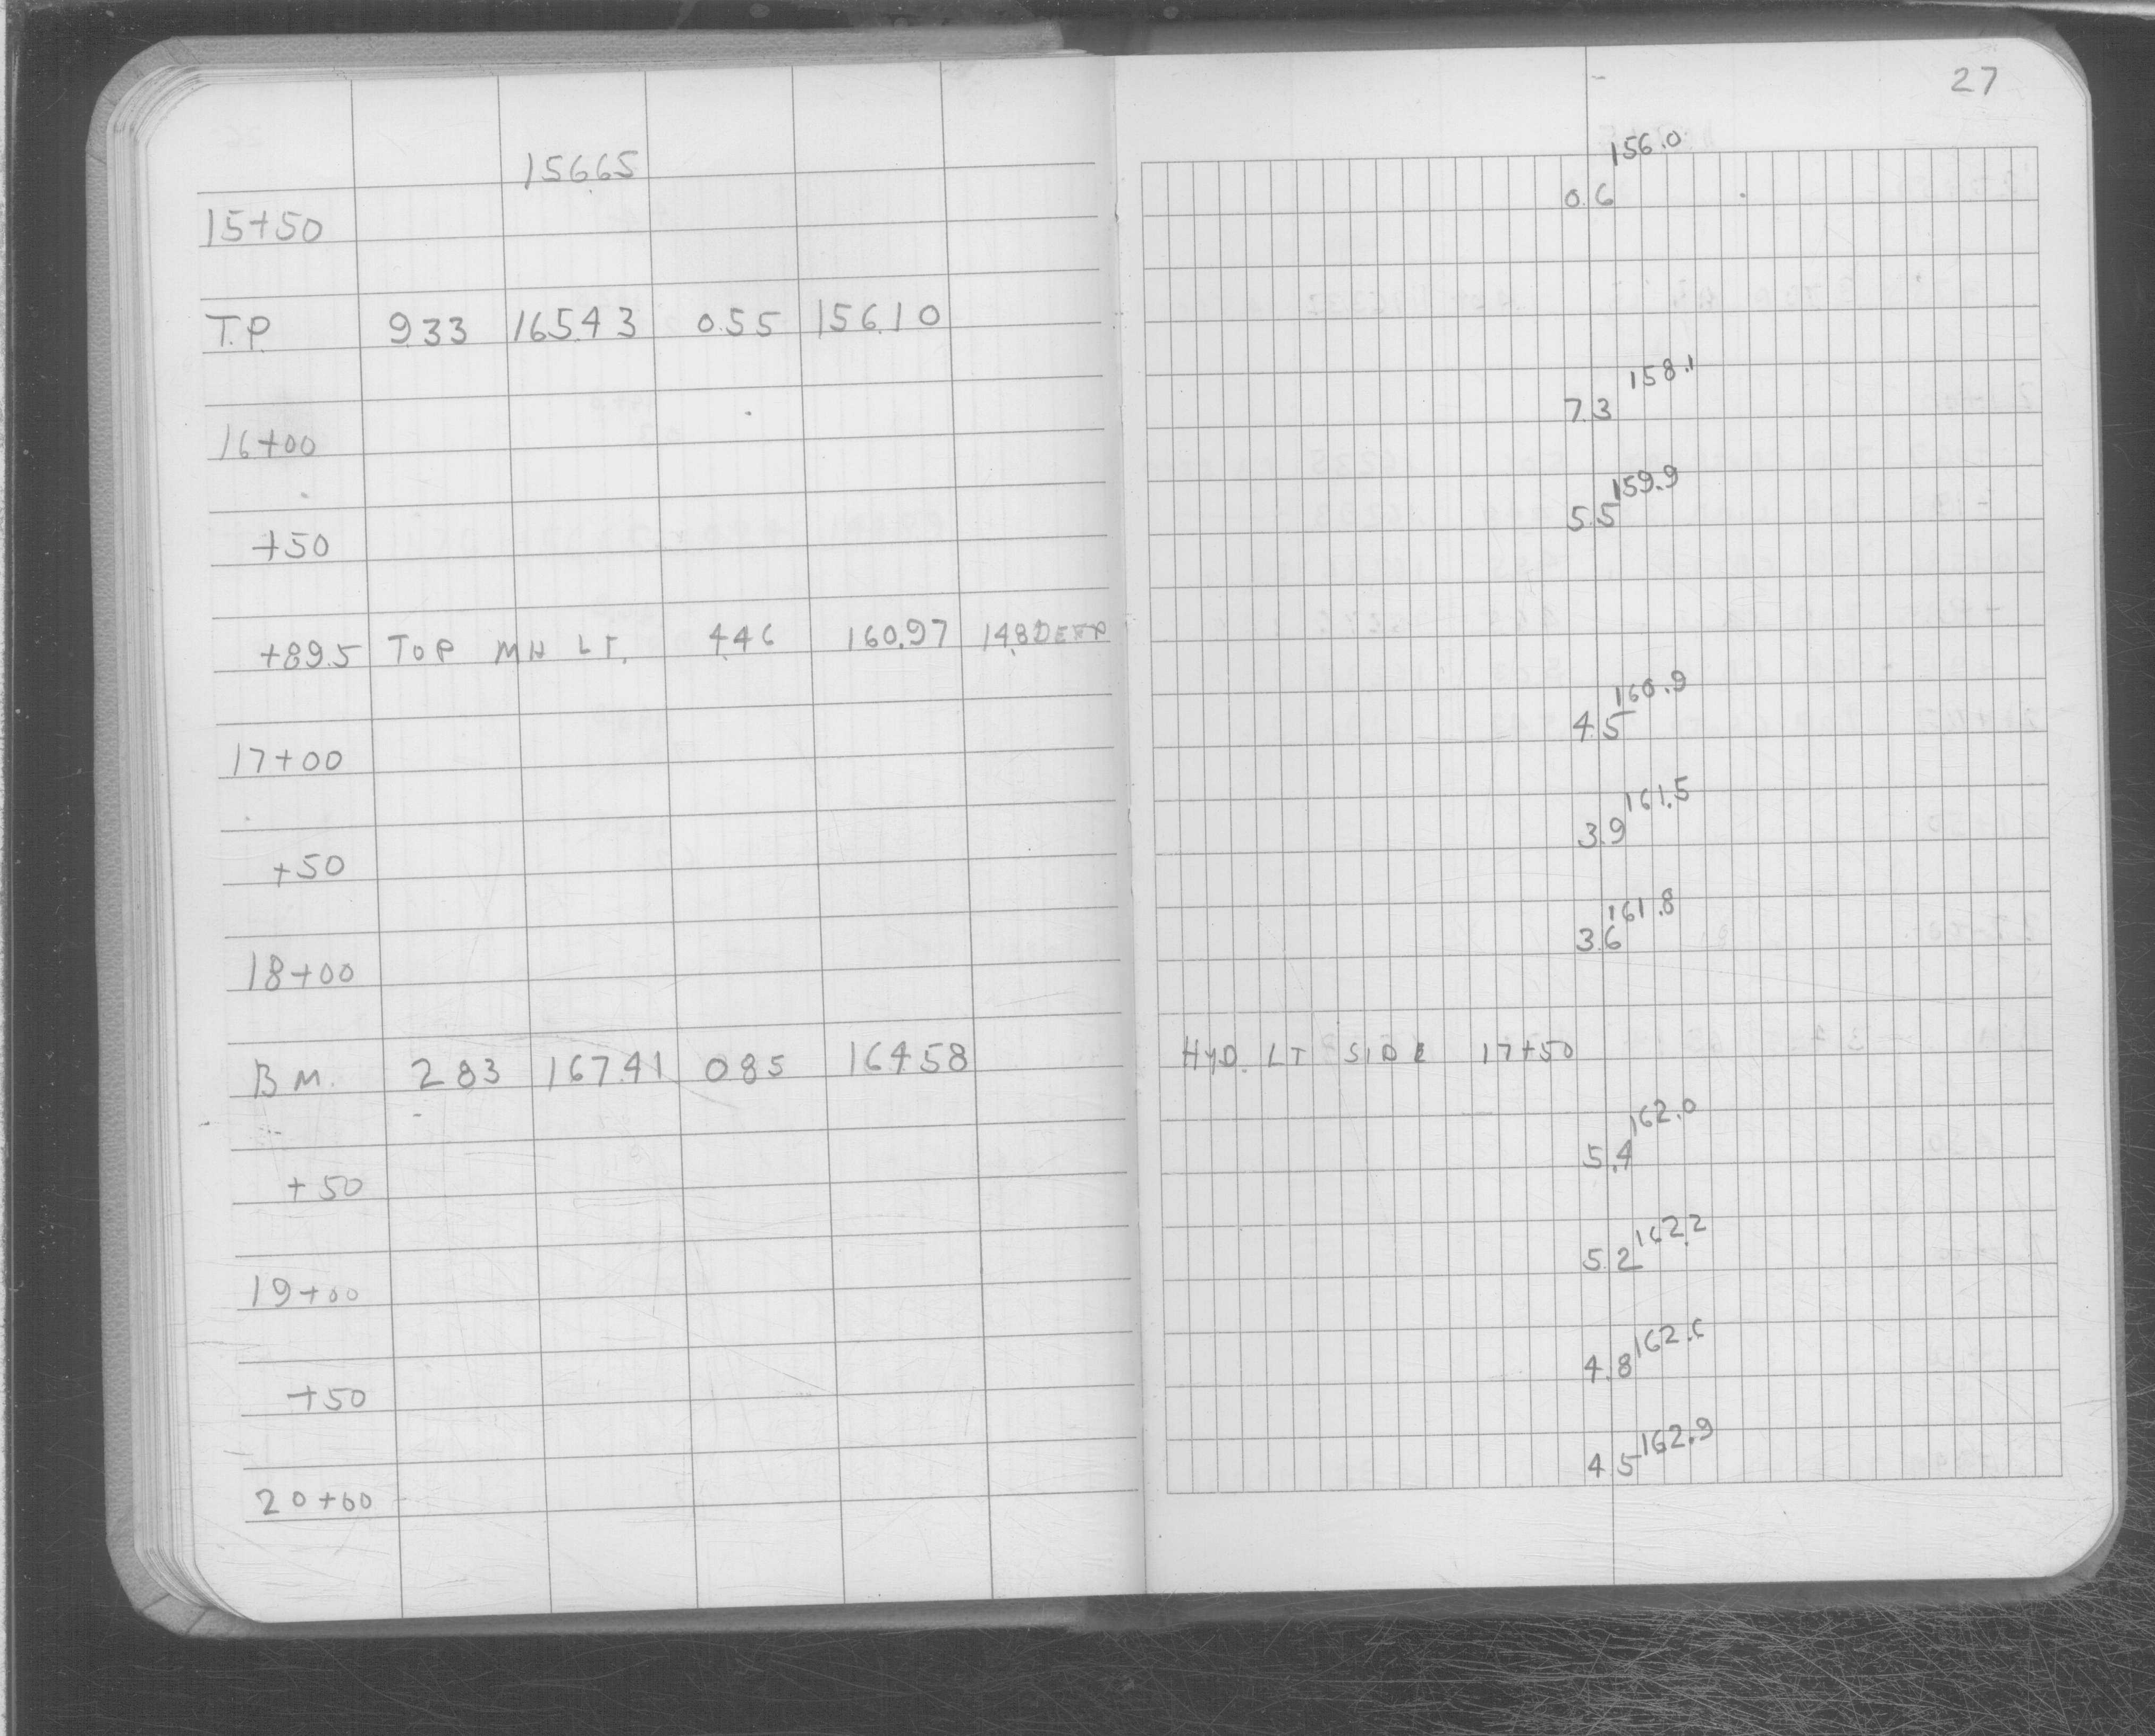 27
156.65
156.0
15+50 0.6
T.P. 9.33 165.43 0.55 156.10
158.1
16+00 7.3
159.9
+50 5.5
+89.5 TOP MH LT. 4.46 160.97 14.8 DEEP
160.9
17+00 4.5
161.5
+50 3.9
161.8
18+00 3.6
B.M. 2.83 167.41 0.85 164.58 HYD. LT SIDE 17+50
162.0
+50 5.4
162.2
19+00 5.2
162.6
+50 4.8
162.9
20+00 4.5